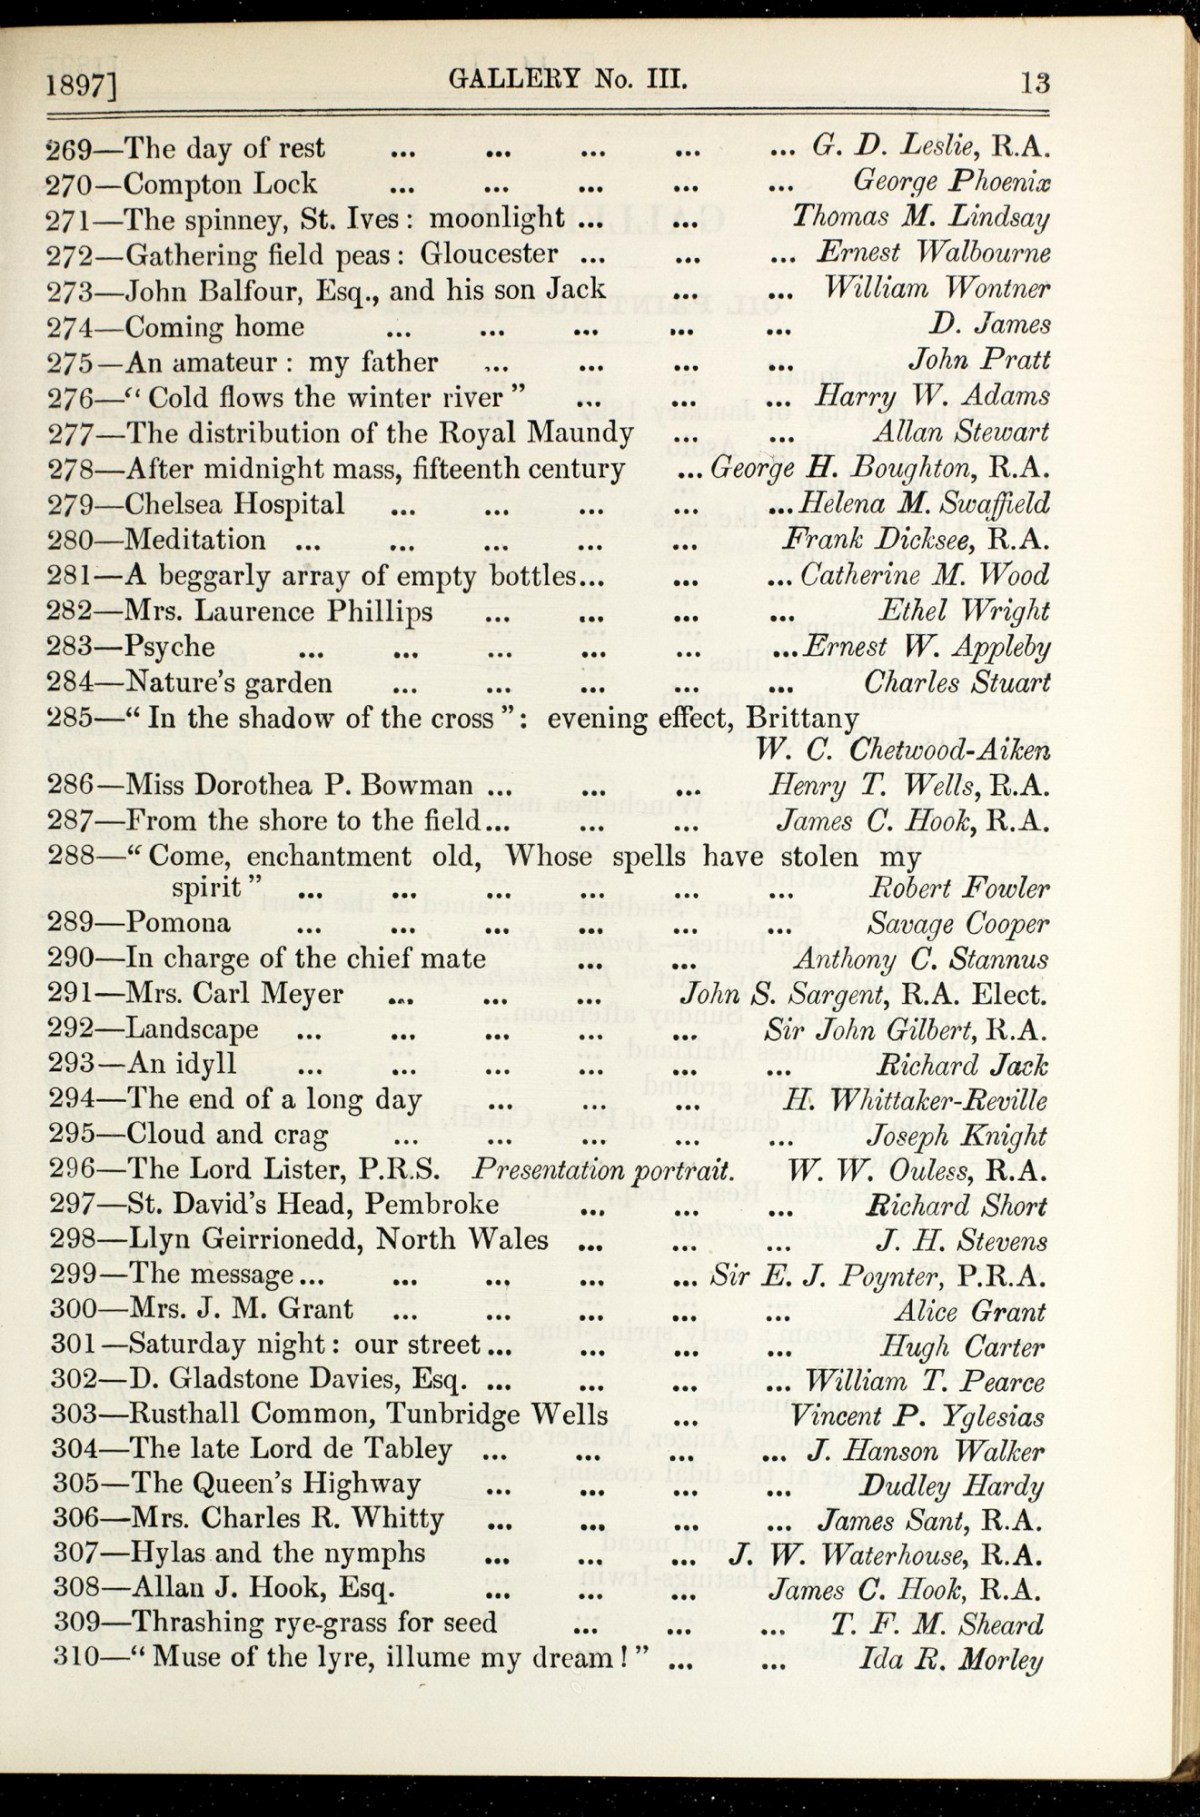 1897] GALLERY No. III. 13
269—The day of rest ... ... ... ... ... G. D. Leslie, R.A.
270—Compton Lock ... ... ... ... ... George Phoenix
271—The spinney, St. Ives: moonlight ... ... Thomas M. Lindsay
272—Gathering field peas: Gloucester ... ... ... Ernest Walbourne
273—John Balfour, Esq., and his son Jack ... ... William Wontner
274—Coming home ... ... ... ... ... D. James
275—An amateur: my father ... ... ... ... John Pratt
276—“Cold flows the winter river” ... ... ... Harry W. Adams
277—The distribution of the Royal Maundy ... ... Allan Stewart
278—After midnight mass, fifteenth century ... George H. Boughton, R.A.
279—Chelsea Hospital ... ... ... ... ... Helena M. Swaffield
280—Meditation ... ... ... ... ... Frank Dicksee, R.A.
281—A beggarly array of empty bottles... ... ... Catherine M. Wood
282—Mrs. Laurence Phillips ... ... ... ... Ethel Wright
283—Psyche ... ... ... ... ... ... Ernest W. Appleby
284—Nature's garden ... ... ... ... ... Charles Stuart
285—“In the shadow of the cross”: evening effect, Brittany
W. C. Chetwood-Aiken
286—Miss Dorothea P. Bowman ... ... ... Henry T. Wells, R.A.
287—From the shore to the field... ... ... James C. Hook, R.A.
288—“Come, enchantment old, Whose spells have stolen my
spirit” ... ... ... ... ... ... Robert Fowler
289—Pomona ... ... ... ... ... ... Savage Cooper
290—In charge of the chief mate ... ... Anthony C. Stannus
291—Mrs. Carl Meyer ... ... ... John S. Sargent, R.A. Elect.
292—Landscape ... ... ... ... ... Sir John Gilbert, R.A.
293—An idyll ... ... ... ... ... ... Richard Jack
294—The end of a long day ... ... ... H. Whittaker-Reville
295—Cloud and crag ... ... ... ... ... Joseph Knight
296—The Lord Lister, P.R.S. Presentation portrait. W. W. Ouless, R.A.
297—St. David's Head, Pembroke ... ... ... Richard Short
298—Llyn Geirrionedd, North Wales ... ... ... J. H. Stevens
299—The message... ... ... ... ... Sir E. J. Poynter, P.R.A.
300—Mrs. J. M. Grant ... ... ... ... ... Alice Grant
301—Saturday night: our street... ... ... ... Hugh Carter
302—D. Gladstone Davies, Esq. ... ... ... ... William T. Pearce
303—Rusthall Common, Tunbridge Wells ... Vincent P. Yglesias
304—The late Lord de Tabley ... ... ... ... J. Hanson Walker
305—The Queen's Highway ... ... ... ... Dudley Hardy
306—Mrs. Charles R. Whitty ... ... ... ... James Sant, R.A.
307—Hylas and the nymphs ... ... ... J. W. Waterhouse, R.A.
308—Allan J. Hook, Esq. ... ... ... James C. Hook, R.A.
309—Thrashing rye-grass for seed ... ... ... T. F. M. Sheard
310—“Muse of the lyre, illume my dream!” ... ... Ida R. Morley